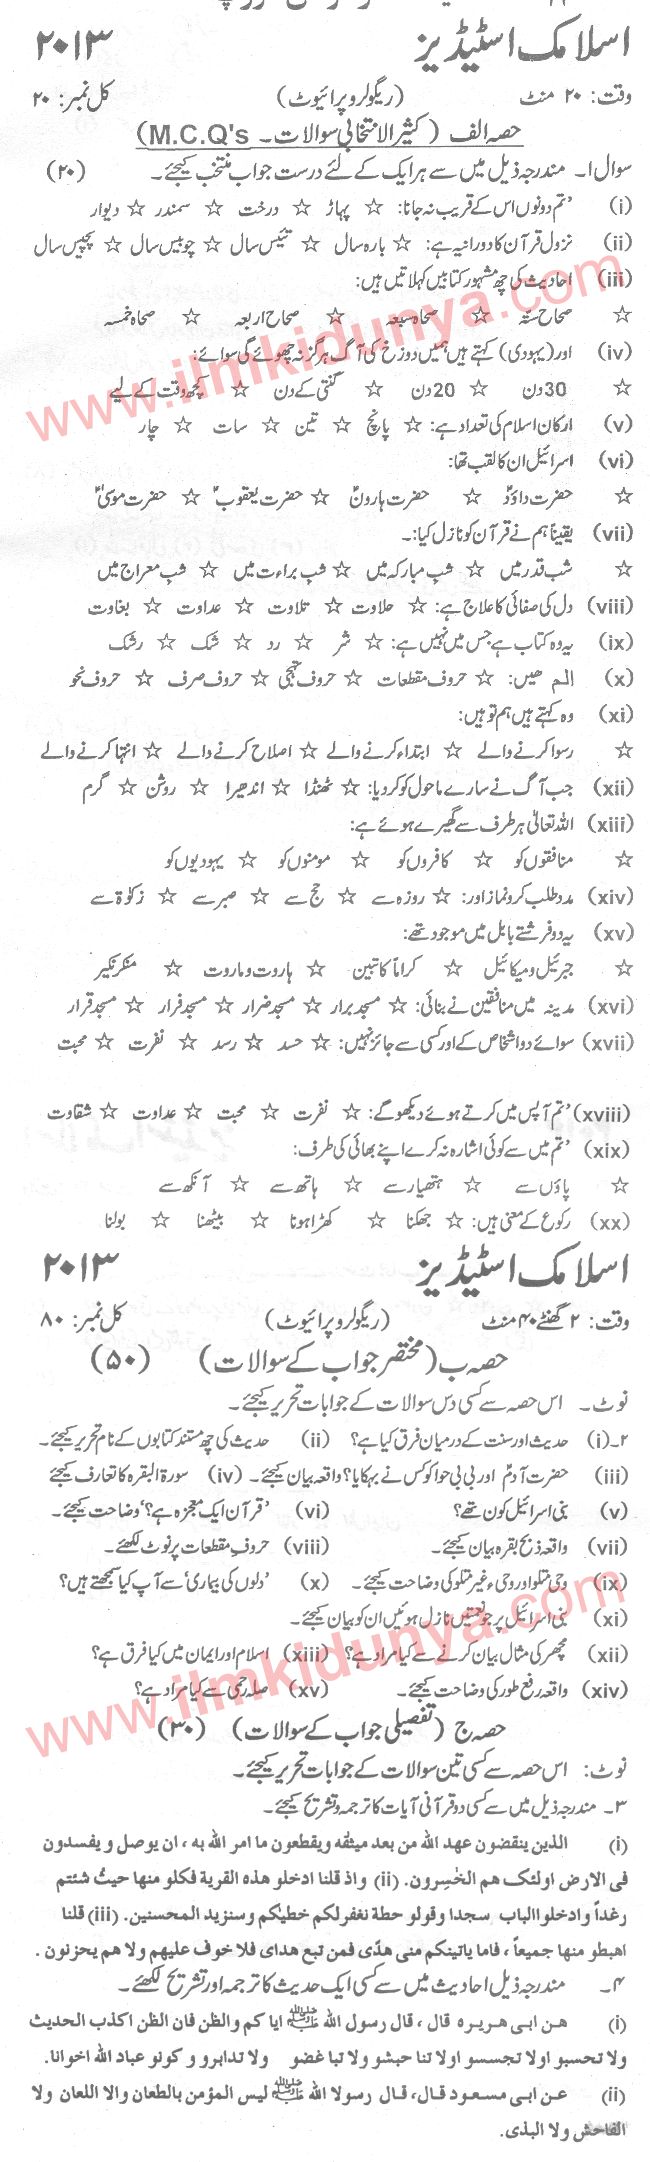 اسلامک اسٹیڈیز ۲۰۱۳
وقت: ۲۰ منٹ (ریگولر و پرائیوٹ) کل نمبر: ۲۰
حصہ الف (کثیر الانتخابی سوالات۔ M.C.Q's)
سوال ۱۔ مندرجہ ذیل میں سے ہر ایک کے لئے درست جواب منتخب کیجئے۔ (۲۰)
(i) 'تم دونوں اس کے قریب نہ جانا: ☆ پہاڑ ☆ درخت ☆ سمندر ☆ دیوار
(ii) نزول قرآن کا دورانیہ ہے: ☆ بارہ سال ☆ تئیس سال ☆ چوبیس سال ☆ پچیس سال
(iii) احادیث کی چھ مشہور کتابیں کہلاتیں ہیں:
☆ صحاح ستہ ☆ صحاہ سبعہ ☆ صحاح اربعہ ☆ صحاہ خمسہ
(iv) اور (یہودی) کہتے ہیں ہمیں دوزخ کی آگ ہرگز نہ چھوئے گی سوائے:
☆ 30 دن ☆ 20 دن ☆ گنتی کے دن ☆ کچھ وقت کے لیے
(v) ارکان اسلام کی تعداد ہے: ☆ پانچ ☆ تین ☆ سات ☆ چار
(vi) اسرائیل ان کا لقب تھا:
☆ حضرت داؤدؑ ☆ حضرت ہارونؑ ☆ حضرت یعقوبؑ ☆ حضرت موسیٰؑ
(vii) یقیناً ہم نے قرآن کو نازل کیا:۔
☆ شب قدر میں ☆ شب مبارکہ میں ☆ شب براءت میں ☆ شب معراج میں
(viii) دل کی صفائی کا علاج ہے: ☆ حلاوت ☆ تلاوت ☆ عداوت ☆ بغاوت
(ix) یہ وہ کتاب ہے جس میں نہیں ہے: ☆ شر ☆ رد ☆ شک ☆ رشک
(x) الم ھیں: ☆ حروف مقطعات ☆ حروف تہجی ☆ حروف صرف ☆ حروف نحو
(xi) وہ کہتے ہیں ہم تو ہیں:
☆ رسوا کرنے والے ☆ ابتداء کرنے والے ☆ اصلاح کرنے والے ☆ انتہا کرنے والے
(xii) جب آگ نے سارے ماحول کو کر دیا: ☆ ٹھنڈا ☆ اندھیرا ☆ روشن ☆ گرم
(xiii) اللہ تعالیٰ ہر طرف سے گھیرے ہوئے ہے:
☆ منافقوں کو ☆ کافروں کو ☆ مومنوں کو ☆ یہودیوں کو
(xiv) مدد طلب کرو نماز اور: ☆ روزہ سے ☆ حج سے ☆ صبر سے ☆ زکوٰۃ سے
(xv) یہ دو فرشتے بابل میں موجود تھے:
☆ جبرئیل و میکائیل ☆ کراماً کاتبین ☆ ہاروت و ماروت ☆ منکر نکیر
(xvi) مدینہ میں منافقین نے بنائی: ☆ مسجد برار ☆ مسجد ضرار ☆ مسجد فرار ☆ مسجد قرار
(xvii) سوائے دو اشخاص کے اور کسی سے جائز نہیں: ☆ حسد ☆ رسد ☆ نفرت ☆ محبت
(xviii) 'تم آپس میں کرتے ہوئے دیکھو گے: ☆ نفرت ☆ محبت ☆ عداوت ☆ شقاوت
(xix) 'تم میں سے کوئی اشارہ نہ کرے اپنے بھائی کی طرف:
☆ پاؤں سے ☆ ہتھیار سے ☆ ہاتھ سے ☆ آنکھ سے
(xx) رکوع کے معنی ہیں: ☆ جھکنا ☆ کھڑا ہونا ☆ بیٹھنا ☆ بولنا
اسلامک اسٹیڈیز ۲۰۱۳
وقت: ۲ گھنٹے ۴۰ منٹ (ریگولر و پرائیوٹ) کل نمبر: ۸۰
حصہ ب (مختصر جواب کے سوالات) (۵۰)
نوٹ۔ اس حصہ سے کسی دس سوالات کے جوابات تحریر کیجئے۔
۲۔(i) حدیث اور سنت کے درمیان فرق کیا ہے؟ (ii) حدیث کی چھ مستند کتابوں کے نام تحریر کیجئے۔
(iii) حضرت آدمؑ اور بی بی حوا کو کس نے بہکایا؟ واقعہ بیان کیجئے۔ (iv) سورۃ البقرہ کا تعارف کیجئے۔
(v) بنی اسرائیل کون تھے؟ (vi) 'قرآن ایک معجزہ ہے'؟ وضاحت کیجئے۔
(vii) واقعہ ذبح بقرہ بیان کیجئے۔ (viii) حروف مقطعات پر نوٹ لکھئے۔
(ix) وحی متلو اور وحیء غیر متلو کی وضاحت کیجئے۔ (x) 'دلوں کی بیماری' سے آپ کیا سمجھتے ہیں؟
(xi) بنی اسرائیل پر جو نعمتیں نازل ہوئیں ان کو بیان کیجئے۔
(xii) مچھر کی مثال بیان کرنے سے کیا مراد ہے؟ (xiii) اسلام اور ایمان میں کیا فرق ہے؟
(xiv) واقعہ رفع طور کی وضاحت کیجئے۔ (xv) صلہ رحمی سے کیا مراد ہے؟
حصہ ج (تفصیلی جواب کے سوالات) (۳۰)
نوٹ: اس حصہ سے کسی تین سوالات کے جوابات تحریر کیجئے۔
۳۔ مندرجہ ذیل میں سے کسی دو قرآنی آیات کا ترجمہ و تشریح کیجئے۔
(i) الذین ینقضون عهد الله من بعد میثٰقه ویقطعون ما امر الله به ، ان یوصل و یفسدون
فی الارض اولئک هم الخٰسرون. (ii) واذ قلنا ادخلو هذه القریة فکلو منها حیثُ شئتم
رغداً وادخلو الباب سجدا وقولو حطة نغفرلکم خطیٰکم وسنزید المحسنین. (iii) قلنا
اهبطو منها جمیعاً ، فاما یاتینکم منی هدًی فمن تبع هدای فلا خوف علیهم ولا هم یحزنون .
۴۔ مندرجہ ذیل احادیث میں سے کسی ایک حدیث کا ترجمہ اور تشریح لکھئے۔
(i) عن ابی هریره قال ، قال رسول الله ﷺ ایا کم والظن فان الظن اکذب الحدیث
ولا تحسبو اولا تجسسو اولا تنا حبشو ولا تبا غضو ولا تدابرو و کونو عباد الله اخوانا.
(ii) عن ابی مسعود قال، قال رسولا الله ﷺ لیس المؤمن بالطعان والا اللعان ولا
الفاحش ولا البذی.
www.ilmkidunya.com
www.ilmkidunya.com